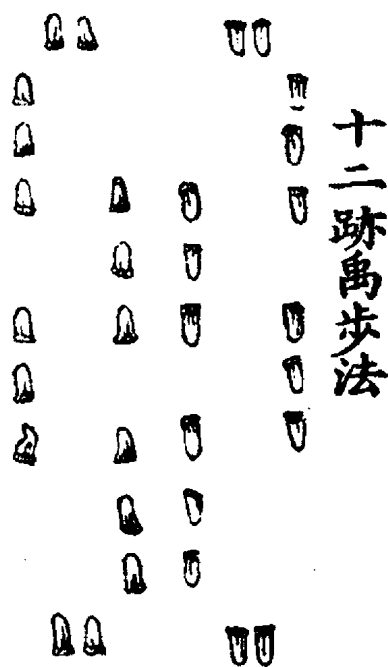 十二跡禹步法